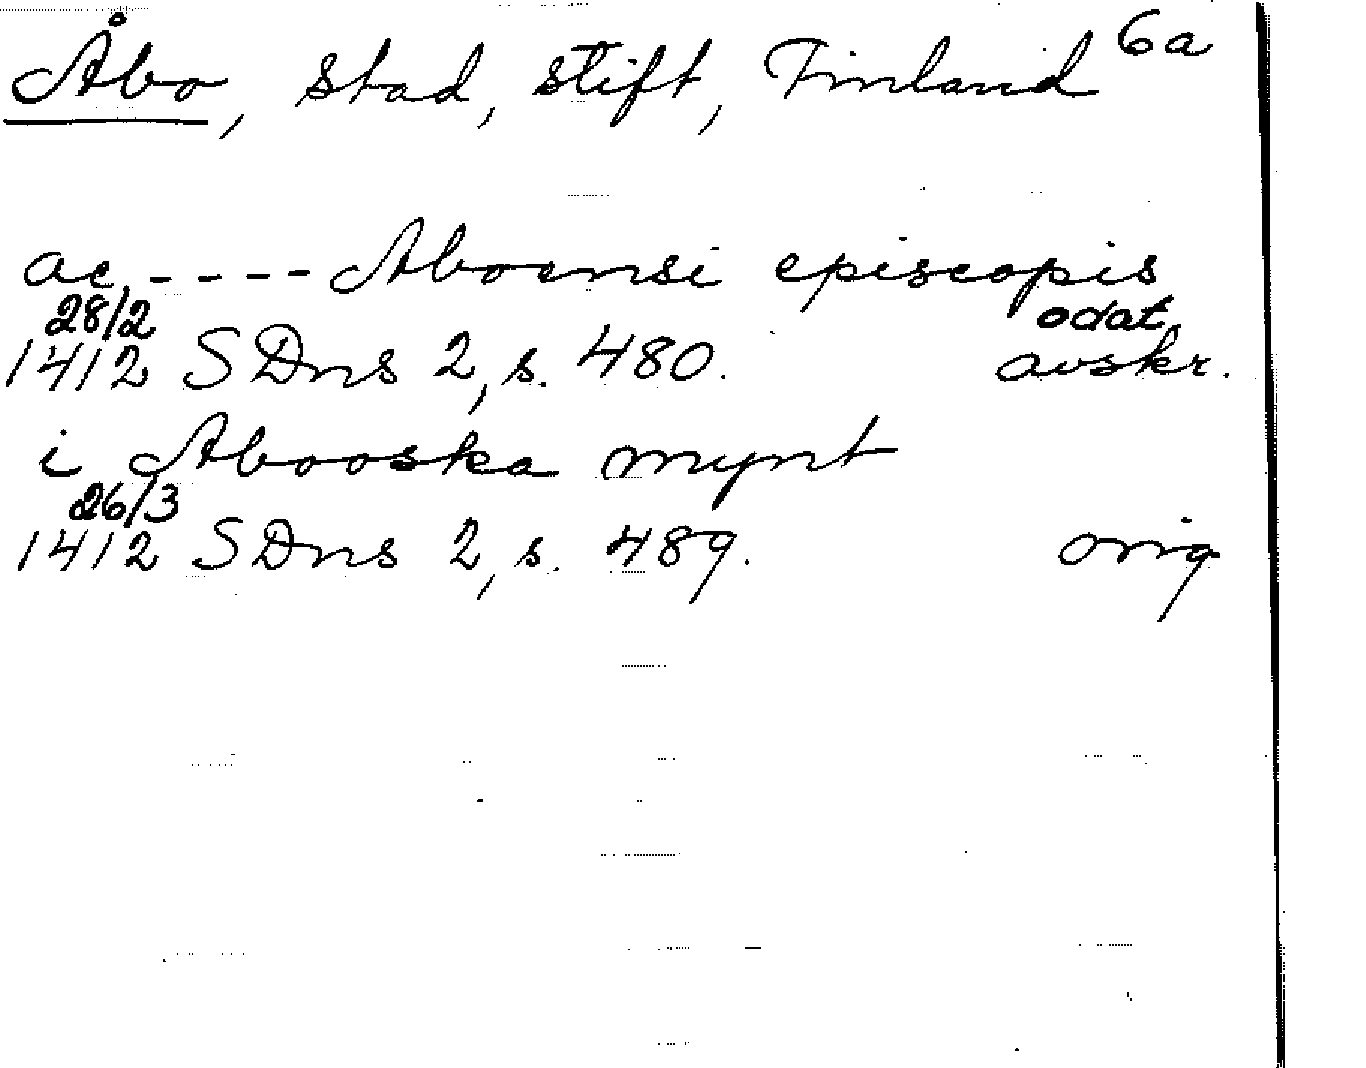 Åbo, stad, stift, Finland 6a
ac - - - - Aboensi episcopis
28/2 odat.
1412 SDns 2, s. 480. avskr.
i Abooska mynt
26/3
1412 SDns 2, s. 489. orig